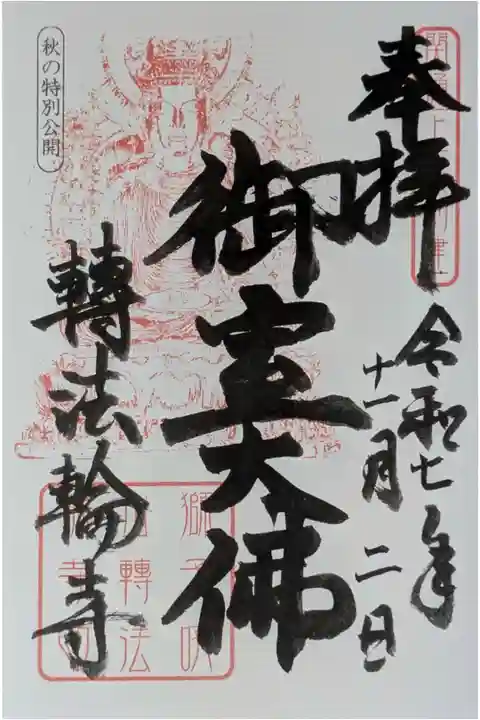 奉拝
令和七年
十一月二日
御室大佛
轉法輪寺
秋の特別公開
獅子吼
山轉法
寺印